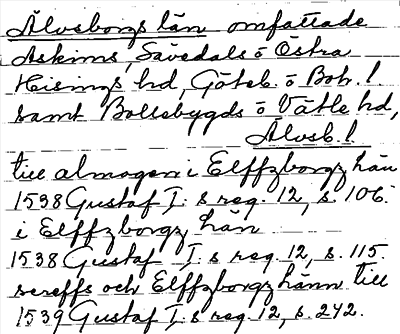 Älvsborgs län omfattade
Askims, Sävedals o Östra
Hisings hd, Göteb. o Boh. l
samt Bollebygds o Vätle hd,
Älvsb. l
till almogen i Elffzborgz hän
1538 Gustaf I:s reg. 12, s. 106.
i Elffzborgz hän
1538 Gustaf I:s reg. 12, s. 115.
screffs och Elffzborgz hänn till
1539 Gustaf I:s reg. 12, s. 242.